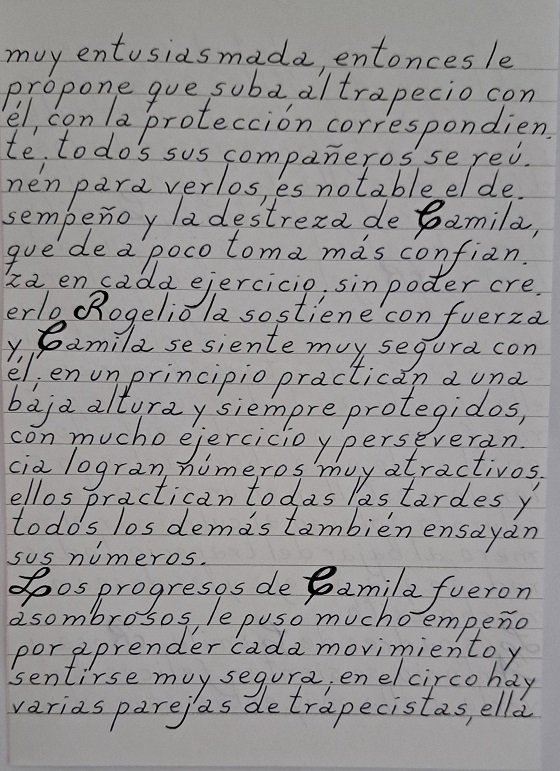 muy entusiasmada, entonces le
propone que suba al trapecio con
él, con la protección correspondien.
te, todos sus compañeros se reú.
nen para verlos, es notable el de.
sempeño y la destreza de Camila,
que de a poco toma más confian.
za en cada ejercicio, sin poder cre.
erlo Rogelio la sostiene con fuerza
y Camila se siente muy segura con
él, en un principio practican a una
baja altura y siempre protegidos,
con mucho ejercicio y perseveran.
cia logran números muy atractivos,
ellos practican todas las tardes y
todos los demás también ensayan
sus números.
Los progresos de Camila fueron
asombrosos, le puso mucho empeño
por aprender cada movimiento y
sentirse muy segura, en el circo hay
varias parejas de trapecistas, ella